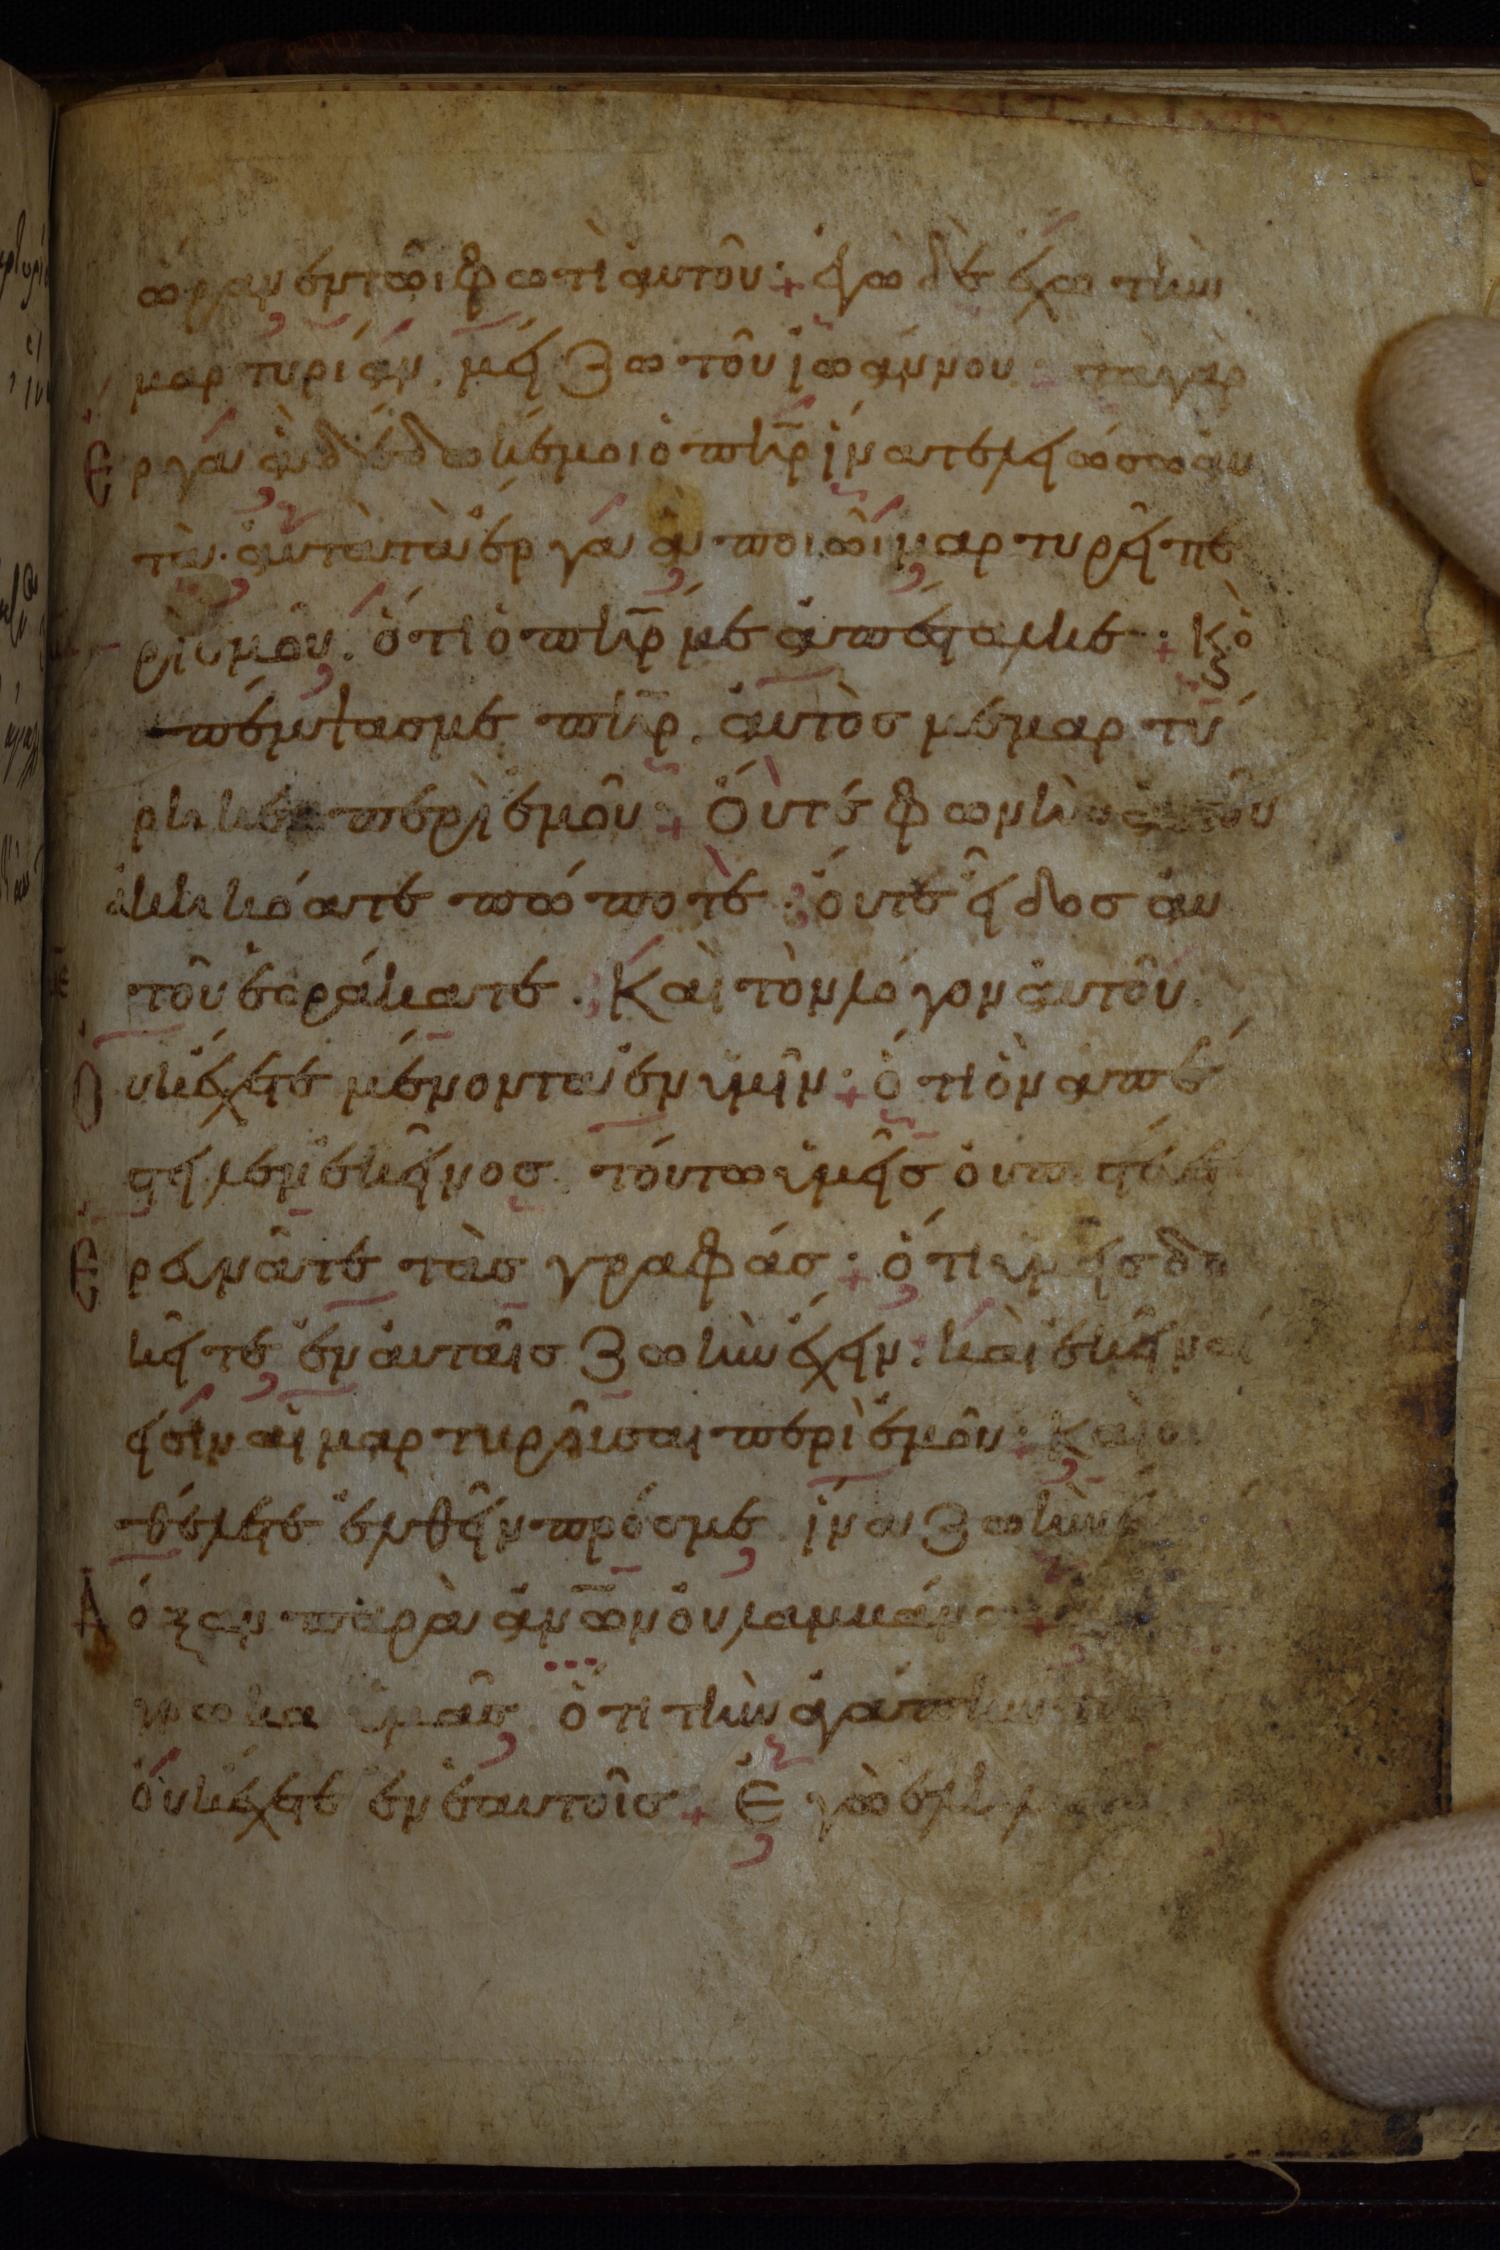 ὥραν ἐν τῶι φωτὶ αὐτοῦ· ἐγὼ δὲ ἔχω τὴν
μαρτυρίαν. μείζω τοῦ ἰωάννου· τὰ γὰρ
Ἔργα ἃ δέδωκέ μοι ὁ πηρ ἵνα τελειώσω αυ
τὰ. αὐτὰ τὰ ἔργα ἃ ποιῶι μαρτυρεῖ πε
ρὶ ἐμοῦ. ὅτι ὁ πηρ με ἀπέσταλκε· κ ὁ
πέμψασ με πηρ. αὐτὸσ μεμαρτύ
ρηκε περὶ ἐμοῦ· Ὄυτε φωνὴν αὐτοῦ
ἀκηκόατε πώποτε· ὄυτε εἶδοσ αυ
τοῦ ἑωράκατε. Καὶ τὸν λόγον ἀυτοῦ
Ὀυκ ἔχετε μένοντα ἐν ὑμῖν· ὅτι ὃν απέ
στειλεν ἐκεῖνοσ τούτω ὑμεῖσ ὀυ πιστεύετε
Ἐρευνᾶτε τὰσ γραφάσ· ὅτι ὑμεῖσ δο
κεῖτε ἐν ἀυταῖσ ζωὴν ἔχειν· καὶ ἐκεῖναί
εἰσιν αἱ μαρτυροῦσαι περὶ ἐμοῦ· Καὶ ου
θέλετε ἐλθεῖν πρόσ με ἵνα ζωὴν
Δόξαν παρὰ ἀνων ὀυ λαμβάνω·
γνωκα ὑμᾶσ ὅτι τὴν ἀγάπην
ὀυκ ἔχετε ἐν ἑαυτοῖσ· Ἐγὼ ἐλη